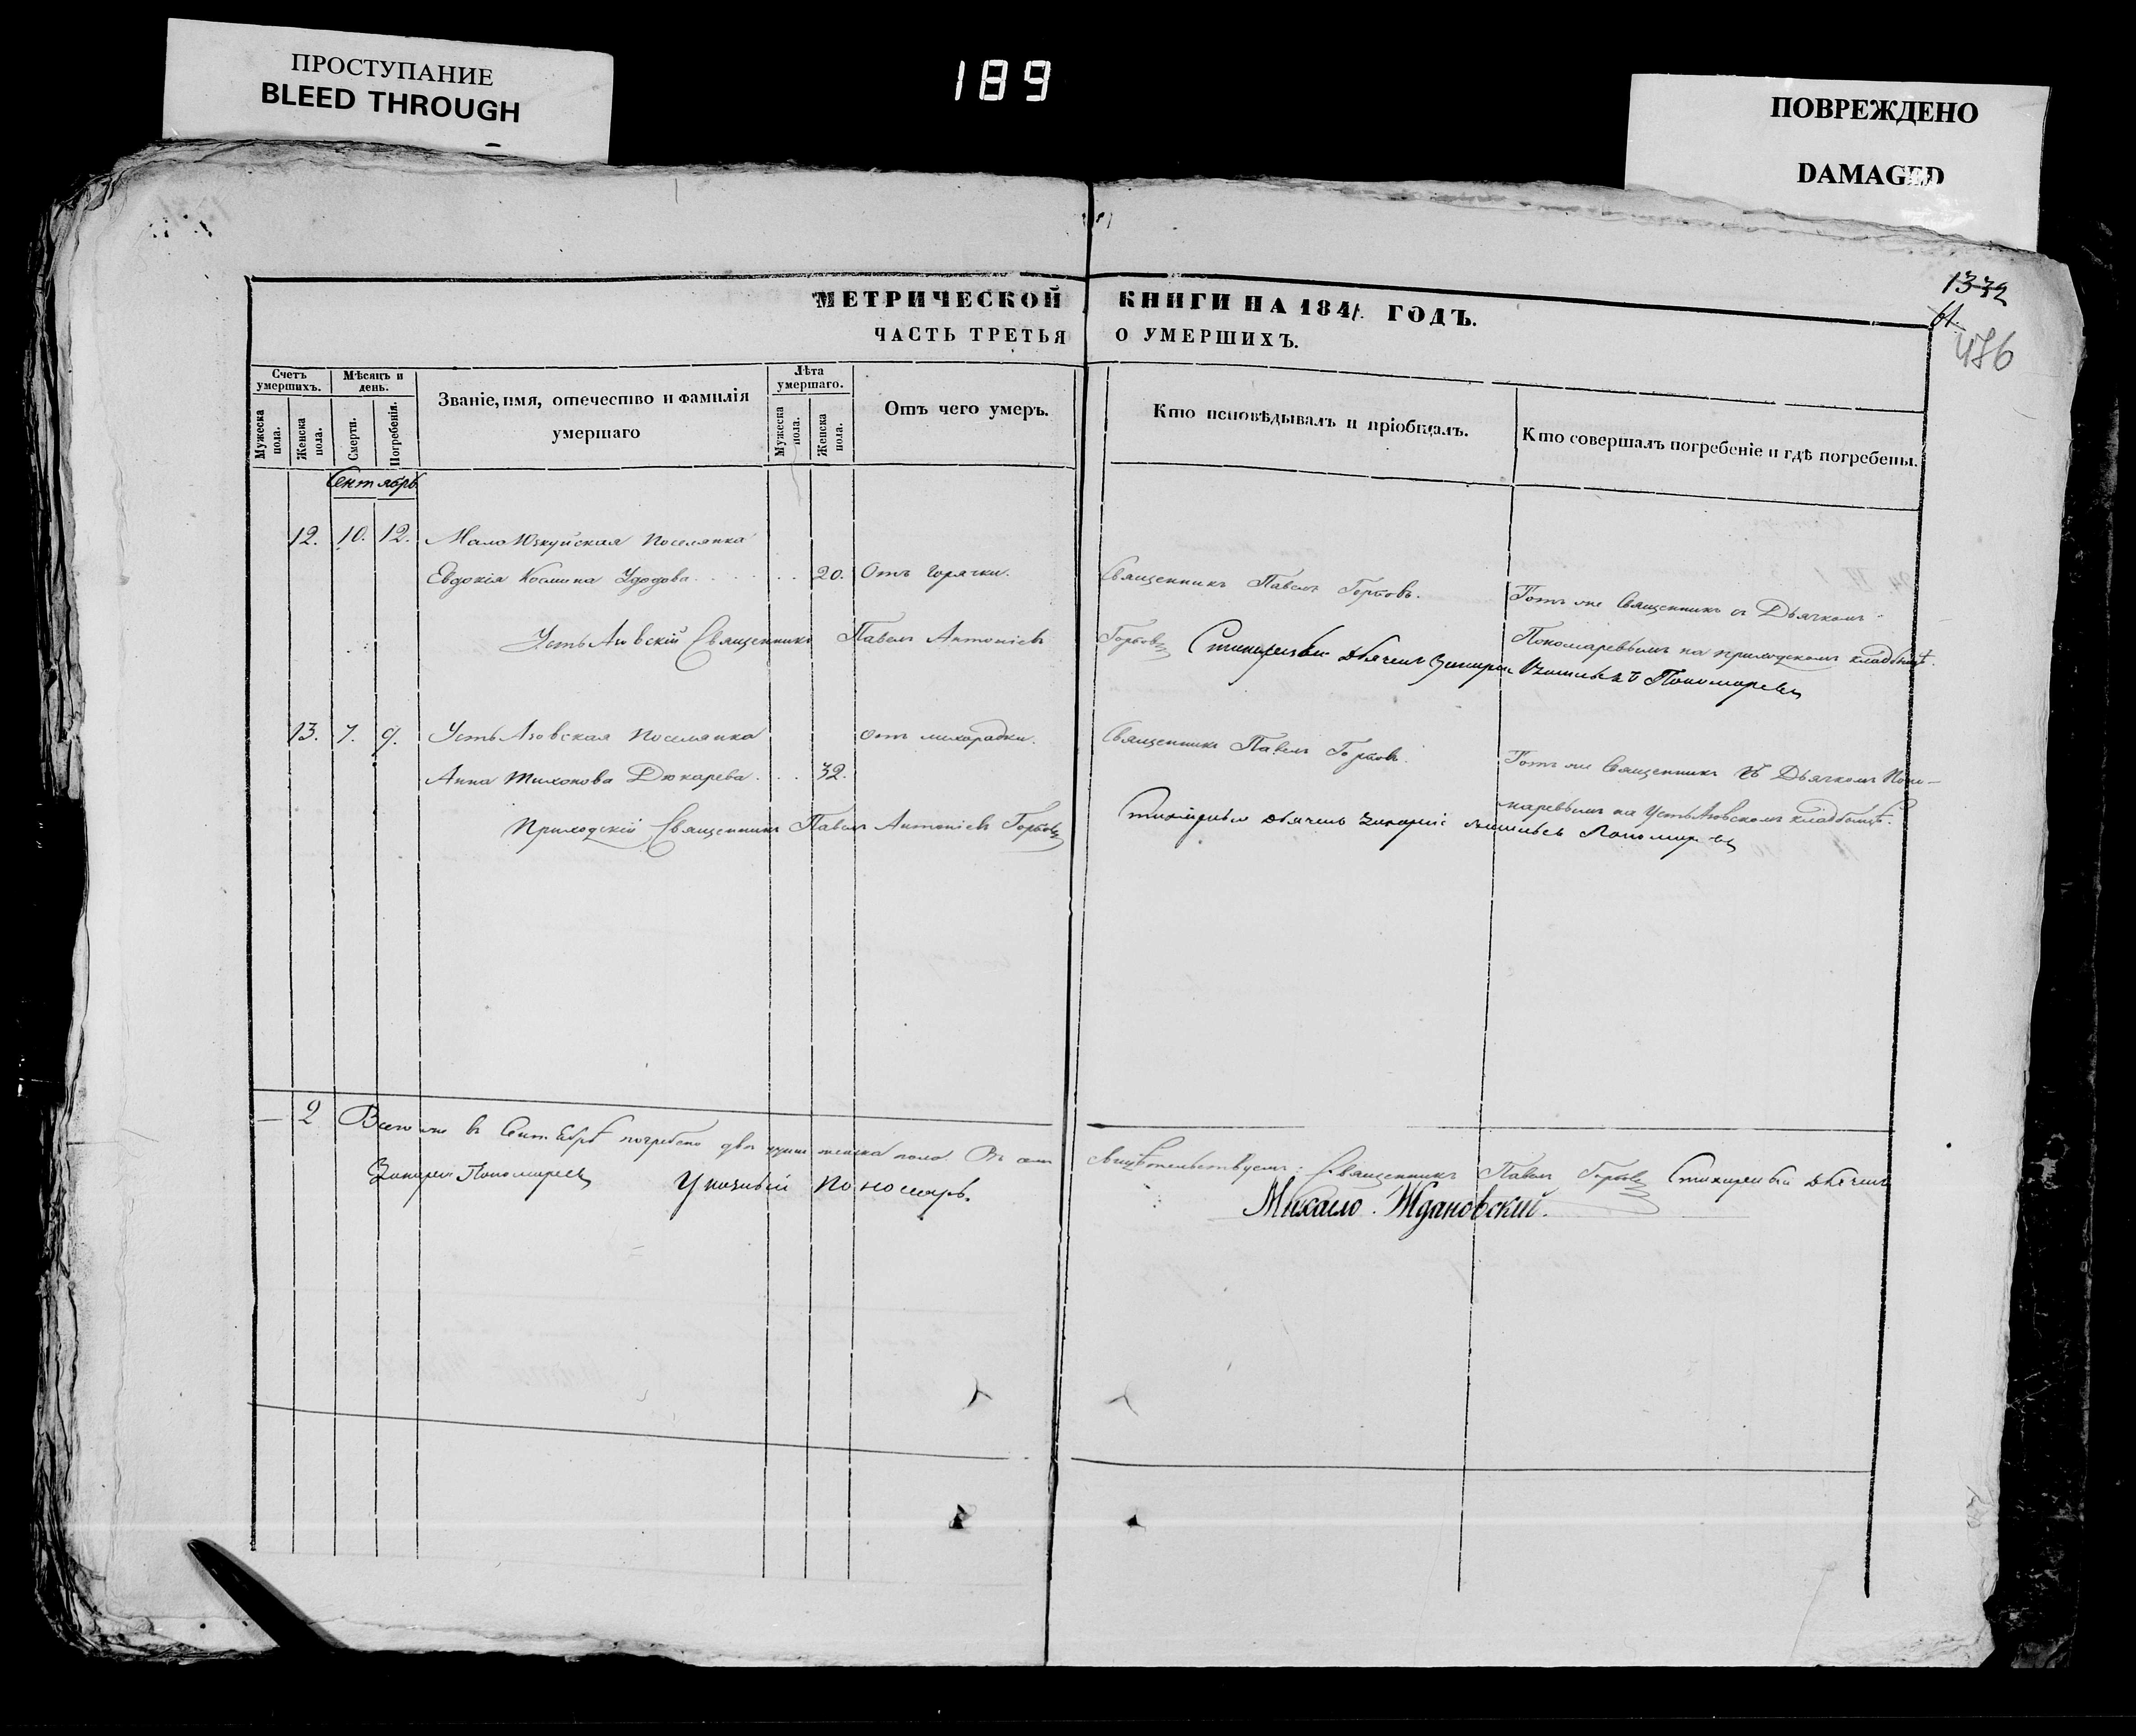 ПРОСТУПАНИЕ
BLEED THROUGH
189
ПОВРЕЖДЕНО
DAMAGED
1332
61.
476
МЕТРИЧЕСКОЙ КНИГИ НА 1841 ГОДЪ.
ЧАСТЬ ТРЕТЬЯ О УМЕРШИХЪ.
Счетъ умершихъ.
Мужеска пола.
Женска пола.
Мѣсяцъ и день.
Смерти.
Погребенія.
Званіе, имя, отечество и фамилія
умершаго
Лѣта умершаго.
Мужеска пола.
Женска пола.
Отъ чего умеръ.
Кто исповѣдывалъ и пріобщалъ.
Кто совершалъ погребеніе и гдѣ погребены.
Сентябрь
12. 10. 12. Мало Юзкуйская поселянка
Евдокія Космина Удодова 20. Отъ горячки. Священникъ Павелъ Горбовъ. Тотъ же Священникъ съ Дьячкомъ
Пономаревымъ на приходскомъ кладбищѣ.
Усть Азовскій Священникъ Павелъ Антоніевъ Горбовъ Стихарный Дьячекъ Захарій Пономаревъ
13. 7. 9. Усть Азовская поселянка отъ лихорадки. Священникъ Павелъ Горбовъ.
Анна Тихонова Дюкарева 32. Тотъ же Священникъ съ Дьячкомъ Поно-
маревымъ на Усть Азовскомъ кладбищѣ.
Приходскій Священникъ Павелъ Антоніевъ Горбовъ Стихарный дьячекъ Захарій Пономаревъ
— 2 Всего же въ Сентябрѣ погребено двѣ души женска пола. Въ чемъ свидѣтельствуемъ: Священникъ Павелъ Горбовъ Стихарный дьячекъ
Захарій Пономаревъ Указный Пономарь. Михаило Ждановскій.